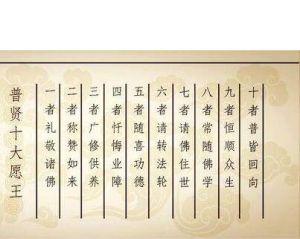 普贤十大愿王
一者礼敬诸佛
二者称赞如来
三者广修供养
四者忏悔业障
五者随喜功德
六者请转法轮
七者请佛住世
八者常随佛学
九者恒顺众生
十者普皆回向